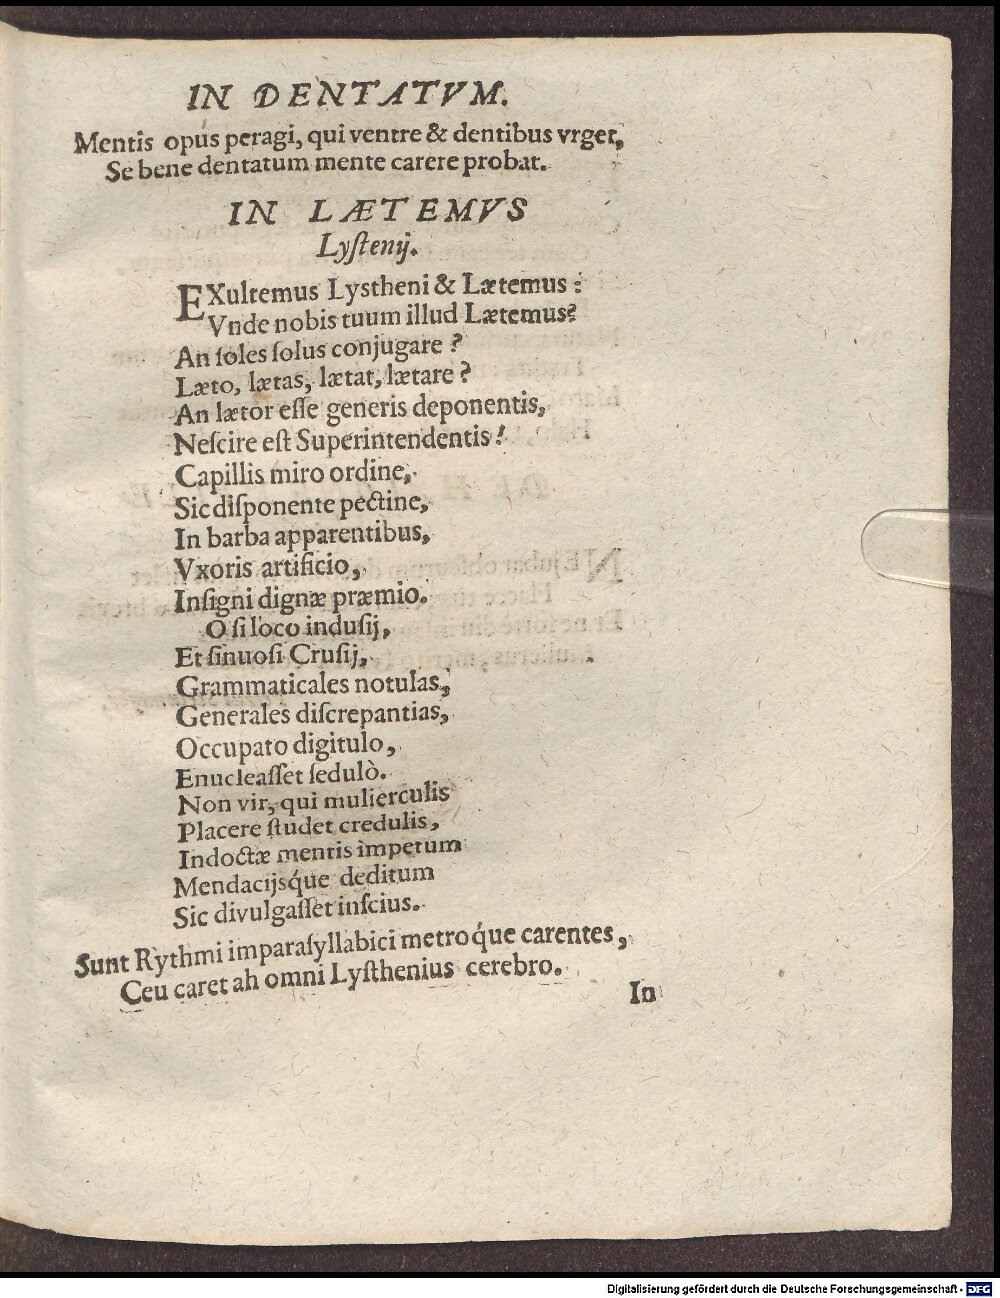 IN DENTATVM.
Mentis opus peragi, qui ventre & dentibus vrget,
Se bene dentatum mente carere probat.
IN LÆTEMVS
Lyſtenij.
EXultemus Lystheni & Lætemus:
Vnde nobis tuum illud Lætemus?
An ſoles ſolus conjugare?
Læto, lætas, lætat, lætare?
An lætor eſſe generis deponentis,
Neſcire eſt Superintendentis!
Capillis miro ordine,
Sic diſponente pectine,
In barba apparentibus,
Vxoris artificio,
Inſigni dignæ præmio.
O ſi loco induſij,
Et ſinuoſi Cruſij,
Grammaticales notulas,
Generales diſcrepantias,
Occupato digitulo,
Enucleaſſet ſedulò.
Non vir, qui mulierculis
Placere ſtudet credulis,
Indoctæ mentis impetum
Mendacijsq́ue deditum
Sic divulgaſſet inſcius.
Sunt Rythmi imparaſyllabici metroq́ue carentes,
Ceu caret ah omni Lyſthenius cerebro.
In
Digitalisierung gefördert durch die Deutsche Forschungsgemeinschaft - DFG